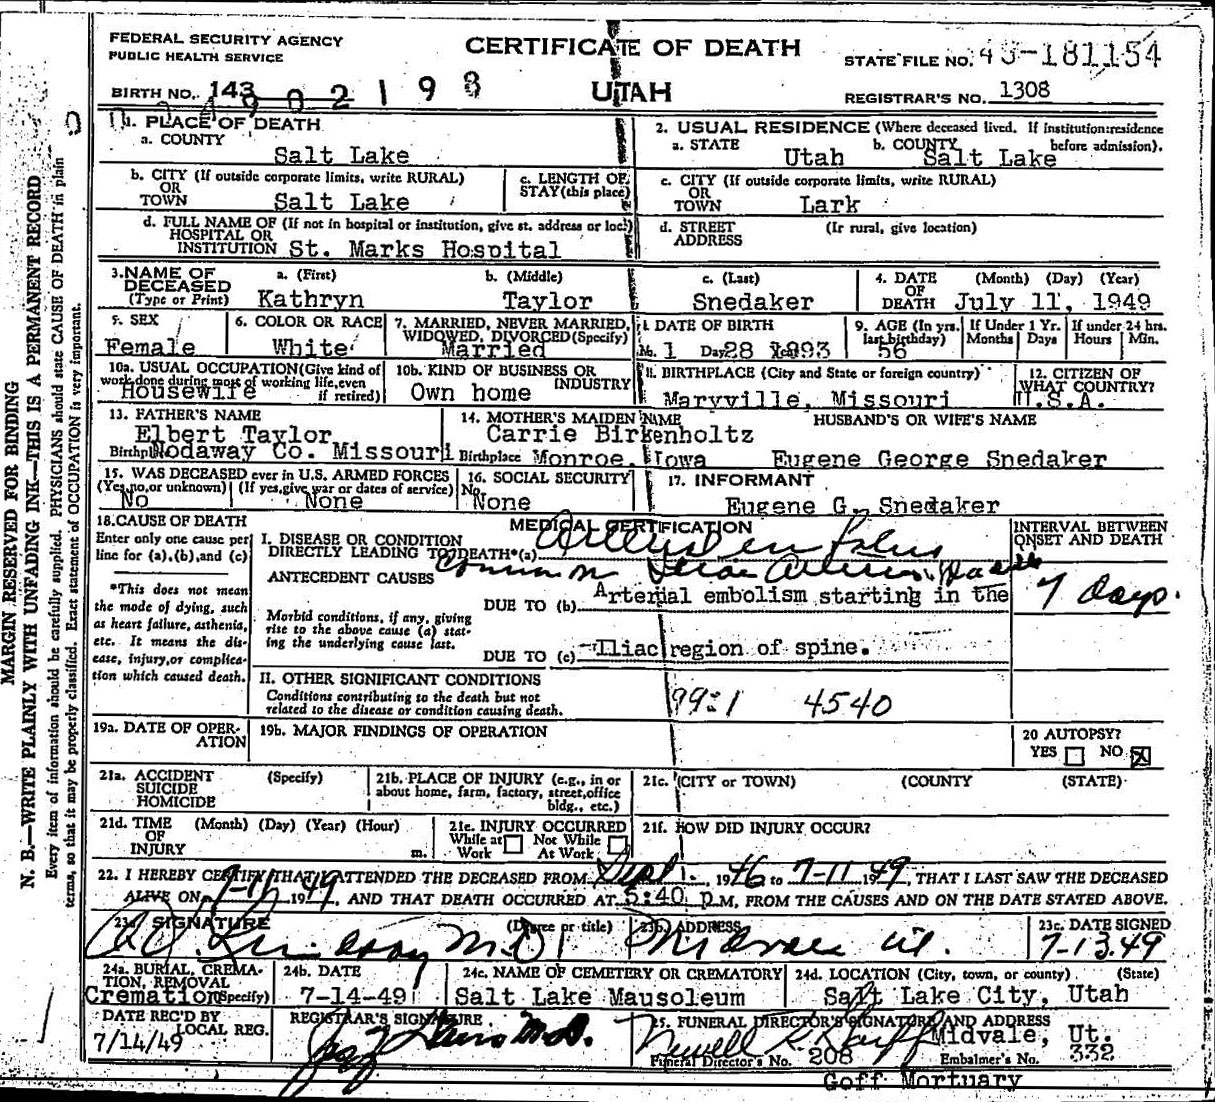 FEDERAL SECURITY AGENCY
PUBLIC HEALTH SERVICE
CERTIFICATE OF DEATH
UTAH
STATE FILE NO. 49-181154
BIRTH NO. 143
902198
REGISTRAR'S NO. 1308
MARGIN RESERVED FOR BINDING
N. B.—WRITE PLAINLY WITH UNFADING INK—THIS IS A PERMANENT RECORD
Every item of information should be carefully supplied. PHYSICIANS should state CAUSE OF DEATH in plain
terms, so that it may be properly classified. Exact statement of OCCUPATION is very important.
1. PLACE OF DEATH
a. COUNTY
Salt Lake
2. USUAL RESIDENCE (Where deceased lived. If institution:residence before admission).
a. STATE Utah b. COUNTY Salt Lake
b. CITY (If outside corporate limits, write RURAL)
OR
TOWN Salt Lake
c. LENGTH OF
STAY (this place)
c. CITY (If outside corporate limits, write RURAL)
OR
TOWN Lark
d. FULL NAME OF (If not in hospital or institution, give st. address or loc.)
HOSPITAL OR
INSTITUTION St. Marks Hospital
d. STREET (If rural, give location)
ADDRESS
3. NAME OF
DECEASED
(Type or Print)
a. (First) b. (Middle) c. (Last)
Kathryn Taylor Snedaker
4. DATE (Month) (Day) (Year)
OF
DEATH July 11, 1949
5. SEX
Female
6. COLOR OR RACE
White
7. MARRIED, NEVER MARRIED,
WIDOWED, DIVORCED (Specify)
Married
DATE OF BIRTH
Mo. 1 Day 28 Year 1893
9. AGE (In yrs. last birthday)
56
If Under 1 Yr.
Months Days
If under 24 hrs.
Hours Min.
10a. USUAL OCCUPATION (Give kind of
work done during most of working life, even
if retired)
Housewife
10b. KIND OF BUSINESS OR
INDUSTRY
Own home
11. BIRTHPLACE (City and State or foreign country)
Maryville, Missouri
12. CITIZEN OF
WHAT COUNTRY?
U.S.A.
13. FATHER'S NAME
Elbert Taylor
Birthpl Nodaway Co. Missouri
14. MOTHER'S MAIDEN NAME
Carrie Birkenholtz
Birthplace Monroe, Iowa
HUSBAND'S OR WIFE'S NAME
Eugene George Snedaker
15. WAS DECEASED ever in U.S. ARMED FORCES
(Yes, no, or unknown) (If yes, give war or dates of service)
No None
16. SOCIAL SECURITY
No.
None
17. INFORMANT
Eugene G. Snedaker
18. CAUSE OF DEATH
Enter only one cause per
line for (a), (b), and (c)
*This does not mean
the mode of dying, such
as heart failure, asthenia,
etc. It means the dis-
ease, injury, or complica-
tion which caused death.
MEDICAL CERTIFICATION
INTERVAL BETWEEN
ONSET AND DEATH
I. DISEASE OR CONDITION
DIRECTLY LEADING TO DEATH*(a)
ANTECEDENT CAUSES Common
DUE TO (b) Arterial embolism starting in the
7 days.
Morbid conditions, if any, giving
rise to the above cause (a) stat-
ing the underlying cause last.
DUE TO (c) Iliac region of spine.
II. OTHER SIGNIFICANT CONDITIONS
Conditions contributing to the death but not
related to the disease or condition causing death.
4540
19a. DATE OF OPER-
ATION
19b. MAJOR FINDINGS OF OPERATION
20 AUTOPSY?
YES NO X
21a. ACCIDENT (Specify)
SUICIDE
HOMICIDE
21b. PLACE OF INJURY (e.g., in or
about home, farm, factory, street, office
bldg., etc.)
21c. (CITY or TOWN) (COUNTY) (STATE)
21d. TIME (Month) (Day) (Year) (Hour)
OF
INJURY m.
21e. INJURY OCCURRED
While at Not While
Work At Work
21f. HOW DID INJURY OCCUR?
22. I HEREBY CERTIFY THAT I ATTENDED THE DECEASED FROM Sept 1, 1946 to 7-11 1949, THAT I LAST SAW THE DECEASED
ALIVE ON 7-11, 1949, AND THAT DEATH OCCURRED AT 5:40 p.M, FROM THE CAUSES AND ON THE DATE STATED ABOVE.
23a. SIGNATURE (Degree or title)
Lindsay M.D.
23b. ADDRESS
Midvale Ut.
23c. DATE SIGNED
7-13.49
24a. BURIAL, CREMA-
TION, REMOVAL
(Specify)
Cremation
24b. DATE
7-14-49
24c. NAME OF CEMETERY OR CREMATORY
Salt Lake Mausoleum
24d. LOCATION (City, town, or county) (State)
Salt Lake City, Utah
DATE REC'D BY
LOCAL REG.
7/14/49
REGISTRAR'S SIGNATURE
M.D.
25. FUNERAL DIRECTOR'S SIGNATURE AND ADDRESS
Newell Goff Midvale, Ut.
Funeral Director's No. 208 Embalmer's No. 332
Goff Mortuary